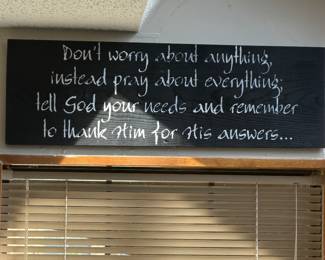 Don't worry about anything,
instead pray about everything;
tell God your needs and remember
to thank Him for His answers...